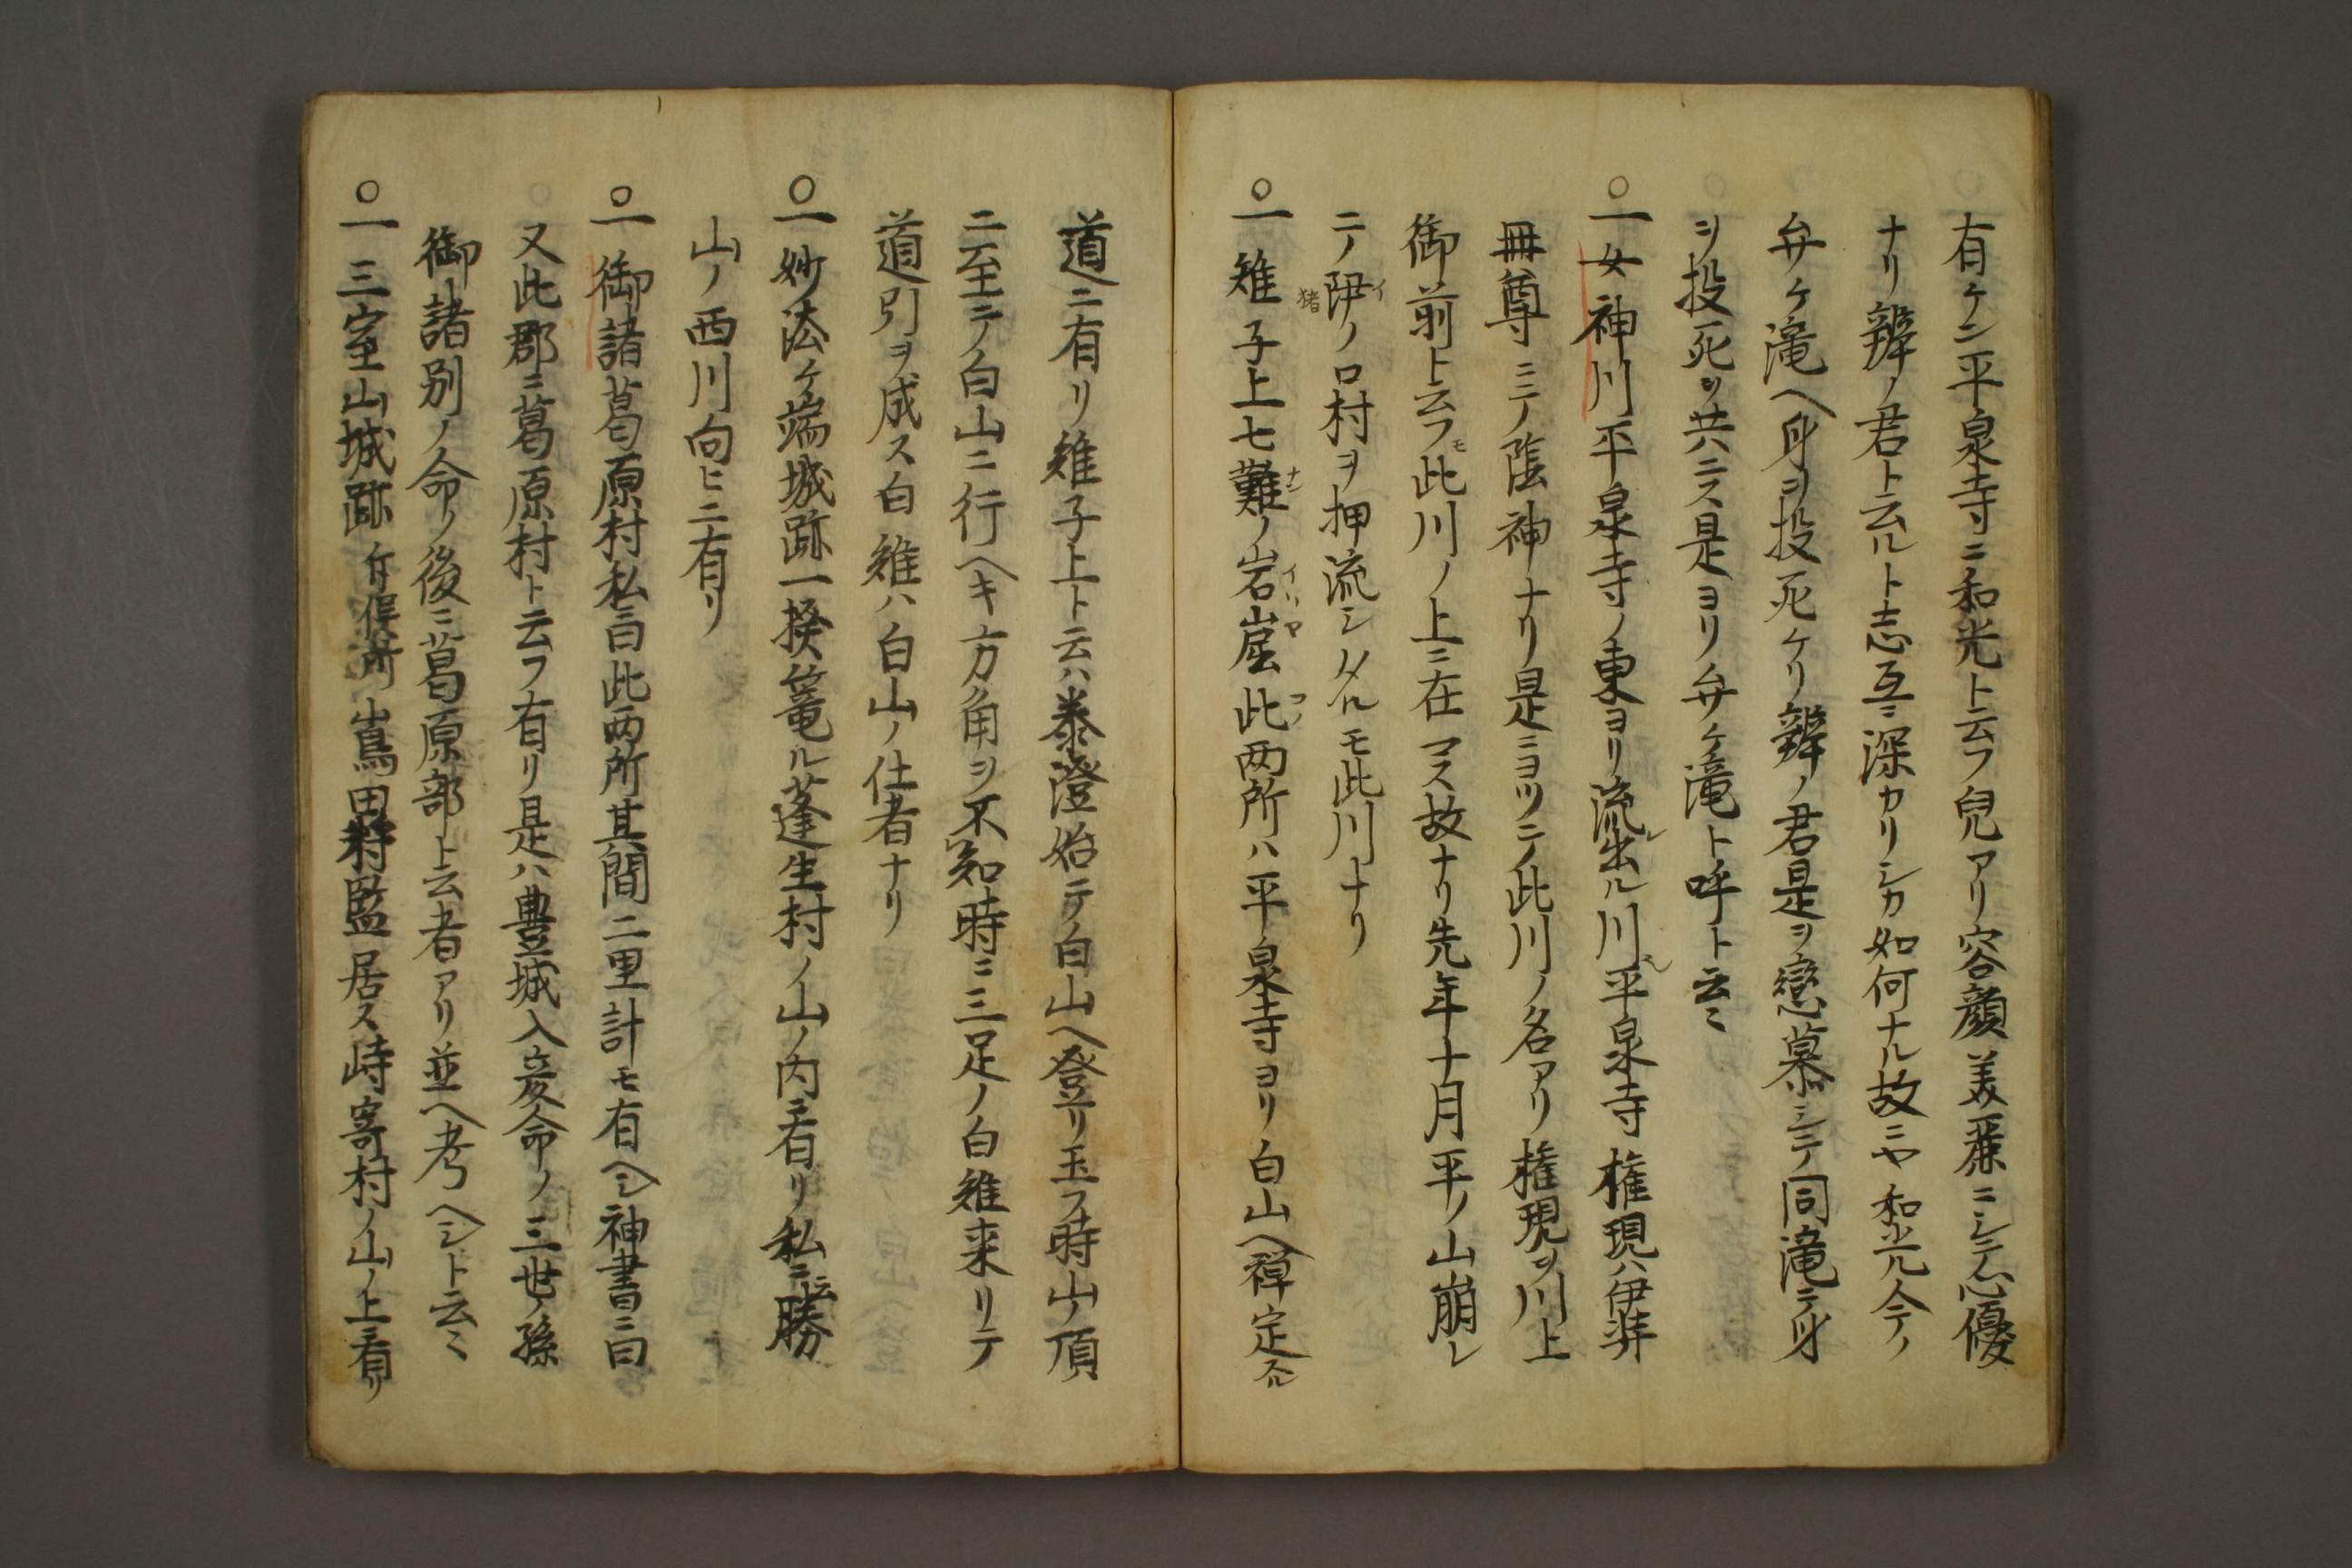 有ケン平泉寺ニ和光ト云フ兒アリ容顔美麗ニシテ心優
ナリ辨ノ君ト云ルト志互ニ深カリシカ如何ナル故ニヤ和光今テノ
弁ケ滝ヘ身ヲ投死ケリ辨ノ君是ヲ戀慕シテ同滝テ身
ヲ投死ヲ共ニス是ヨリ弁ケ滝ト呼ト云ミ
〇一女神川平泉寺ノ東ヨリ流出レル川也平泉寺権現ハ伊弉
冊尊ニテ陰神ナリ是ニヨツテ此川ノ名アリ権現ヲ川上
御前ト云フモ此川ノ上ニ在マス故ナリ先年十月平ノ山崩レ
テ猪イノ口村ヲ押流シタルモ此川ナリ
〇一雉子上七難ナンノ岩屈イハヤ此コノ両所ハ平泉寺ヨリ白山ヘ禅定スル
道ニ有リ雉子上ト云ハ泰澄始テ白山ヘ登リ玉フ時山ノ頂
ニ至テ白山ニ行ヘキ方角ヲ不知時ニ三足ノ白雉来リテ
道引ヲ成ス白雉ハ白山ノ仕者ナリ
〇一妙法ケ端城跡一揆篭ル蓬生村ノ山ノ内ニ有リ私ニ云勝
山ノ西川向ヒニ有リ
〇一御諸葛原村私曰此両所其間二里計モ有ヘシ神書ニ曰
又此郡ニ葛原村ト云フ有リ是ハ豊城入彦命ノ三世ノ孫
御諸別ノ命ノ後ニ葛原部ト云者アリ並ヘ考ヘシト云ミ
〇一三室山城跡 嶌田将監居ス峙寄村ノ山ノ上ニ有リ